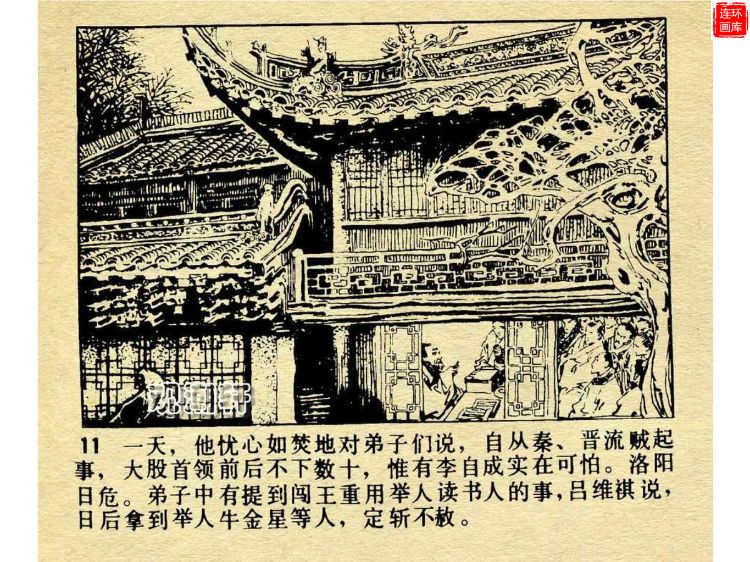 连环
画库
观潮轩
11 一天，他忧心如焚地对弟子们说，自从秦、晋流贼起
事，大股首领前后不下数十，惟有李自成实在可怕。洛阳
日危。弟子中有提到闯王重用举人读书人的事，吕维祺说，
日后拿到举人牛金星等人，定斩不赦。